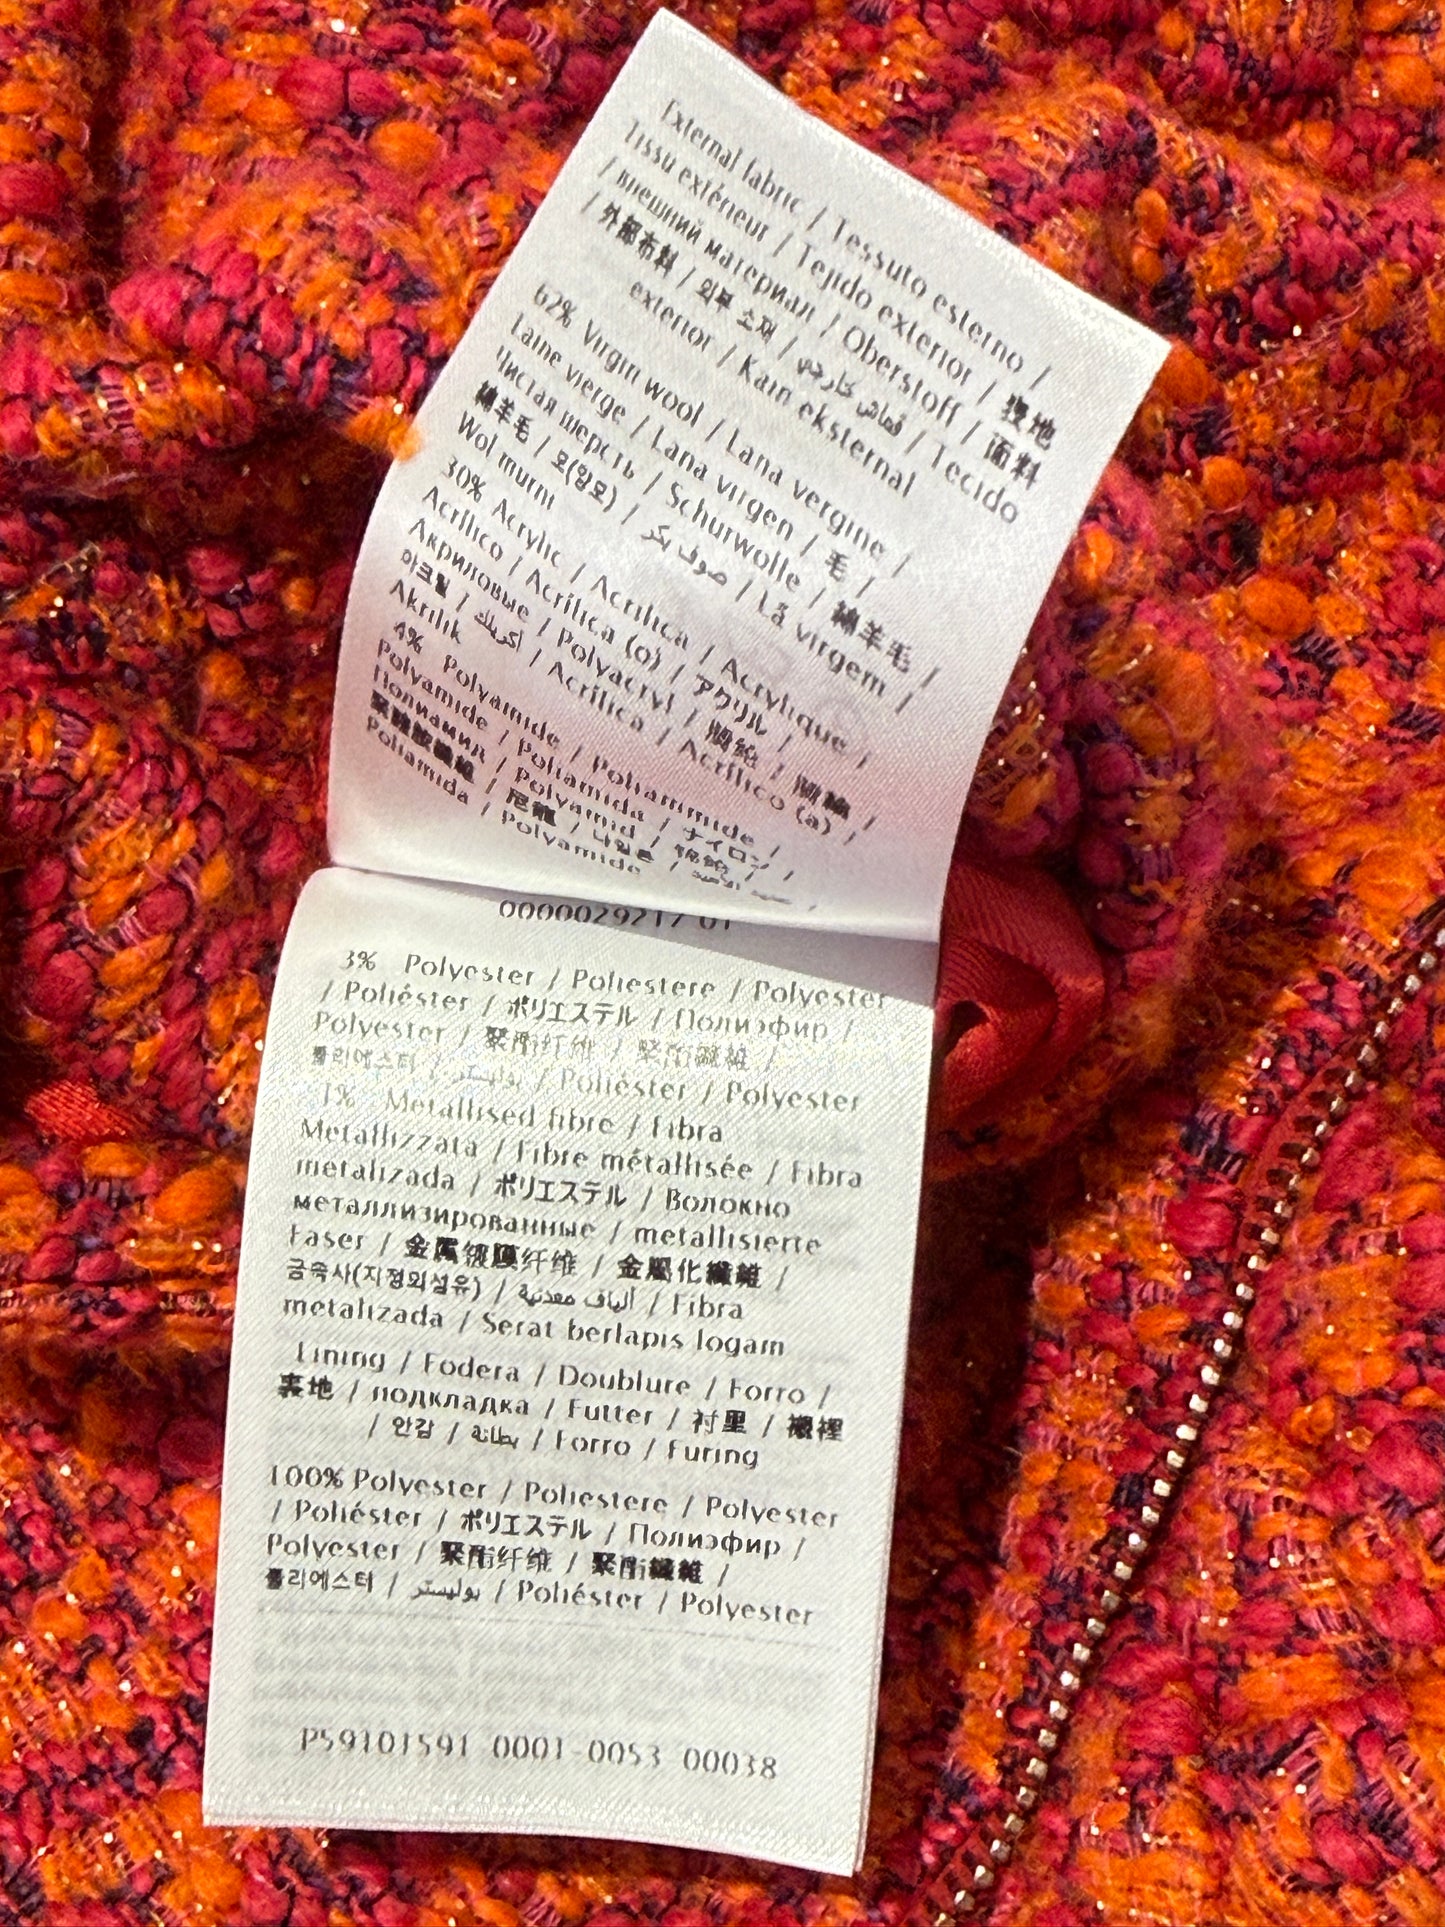 External fabric / Tessuto esterno /
Tissu extérieur / Tejido exterior / 表地
/ внешний материал / Oberstoff / 面料
/ 外部布料 / 외부 소재 / قماش خارجي / Tecido
exterior / Kain eksternal
62% Virgin wool / Lana vergine /
Laine vierge / Lana virgen / 毛 /
Чистая шерсть / Schurwolle / 綿羊毛 /
綿羊毛 / 모(양모) / صوف بكر / Lã virgem /
Wol murni
30% Acrylic / Acrilica / Acrylique /
Acrílico / Acrílica (o) / アクリル /
Акриловые / Polyacryl / 腈纶 / 腈綸 /
아크릴 / أكريليك / Acrílica / Acrílico (a) /
Akrilik
4% Polyamide / Poliammide /
Polyamide / Poliamida / ナイロン /
Полиамид / Polyamid / 锦纶 /
聚醯胺纖維 / 尼龍 / 나일론 /
Poliamida / Polyamide
0000029217 01
3% Polyester / Poliestere / Polyester
/ Poliéster / ポリエステル / Полиэфир /
Polyester / 聚酯纤维 / 聚酯纖維 /
폴리에스터 / بوليستر / Poliéster / Polyester
1% Metallised fibre / Fibra
Metallizzata / Fibre métallisée / Fibra
metalizada / ポリエステル / Волокно
металлизированные / metallisierte
Faser / 金属镀膜纤维 / 金屬化纖維 /
금속사(지정외섬유) / ألياف معدنية / Fibra
metalizada / Serat berlapis logam
Lining / Fodera / Doublure / Forro /
裏地 / подкладка / Futter / 衬里 / 襯裡
/ 안감 / بطانة / Forro / Furing
100% Polyester / Poliestere / Polyester
/ Poliéster / ポリエステル / Полиэфир /
Polyester / 聚酯纤维 / 聚酯纖維 /
폴리에스터 / بوليستر / Poliéster / Polyester
P59101591 0001-0053 00038